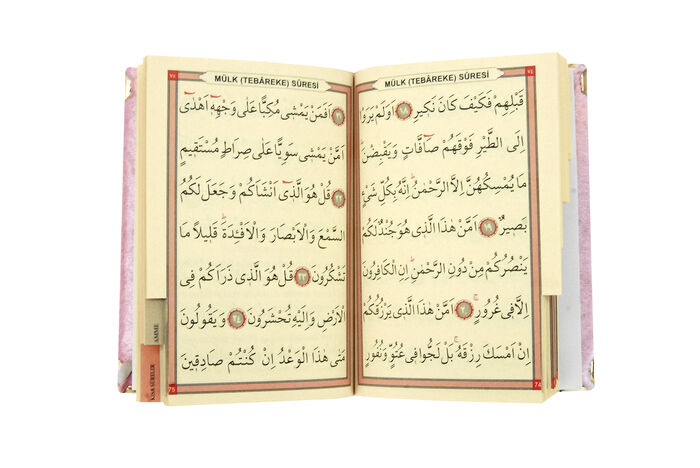 ٧٤
MÜLK (TEBÂREKE) SÛRESİ
قَبْلِهِمْ فَكَيْفَ كَانَ نَكِيرِ ١٨ اَوَلَمْ يَرَوْا
اِلَى الطَّيْرِ فَوْقَهُمْ صَٓافَّاتٍ وَيَقْبِضْنَ
مَا يُمْسِكُهُنَّ اِلَّا الرَّحْمٰنُ اِنَّهُ بِكُلِّ شَيْءٍ
بَصِيرٌ ١٩ اَمَّنْ هٰذَا الَّذِى هُوَ جُنْدٌ لَكُمْ
يَنْصُرُكُمْ مِنْ دُونِ الرَّحْمٰنِ اِنِ الْكَافِرُونَ
اِلَّا فِى غُرُورٍ ٢٠ اَمَّنْ هٰذَا الَّذِى يَرْزُقُكُمْ
اِنْ اَمْسَكَ رِزْقَهُ بَلْ لَجُّوا فِى عُتُوٍّ وَنُفُورٍ
74
٧٥
MÜLK (TEBÂREKE) SÛRESİ
٢١ اَفَمَنْ يَمْشِى مُكِبًّا عَلٰى وَجْهِهِٓ اَهْدٰٓى
اَمَّنْ يَمْشِى سَوِيًّا عَلٰى صِرَاطٍ مُسْتَقِيمٍ
٢٢ قُلْ هُوَ الَّذِٓى اَنْشَاَكُمْ وَجَعَلَ لَكُمُ
السَّمْعَ وَالْاَبْصَارَ وَالْاَفْـِٔدَةَ قَلِيلًا مَا
تَشْكُرُونَ ٢٣ قُلْ هُوَ الَّذِى ذَرَاَكُمْ فِى
الْاَرْضِ وَاِلَيْهِ تُحْشَرُونَ ٢٤ وَيَقُولُونَ
مَتٰى هٰذَا الْوَعْدُ اِنْ كُنْتُمْ صَادِقِينَ
75
AMME
KISA SÛRELER